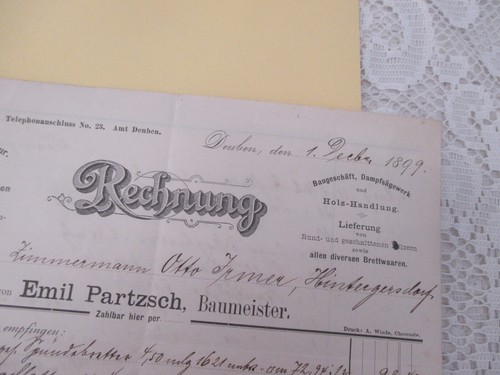 Telephonanschluss No. 23. Amt Deuben.
Deuben, den 1. Decbr 1899.
Rechnung
Baugeschäft, Dampfsägewerk
und
Holz-Handlung.
Lieferung
von
Rund- und geschnittenen Hölzern
sowie
allen diversen Brettwaaren.
Zimmermann Otto Irmer, Hintergersdorf
von Emil Partzsch, Baumeister.
Zahlbar hier per
Druck: A. Wiede, Chemnitz.
empfingen:
Spundebretter 4/50